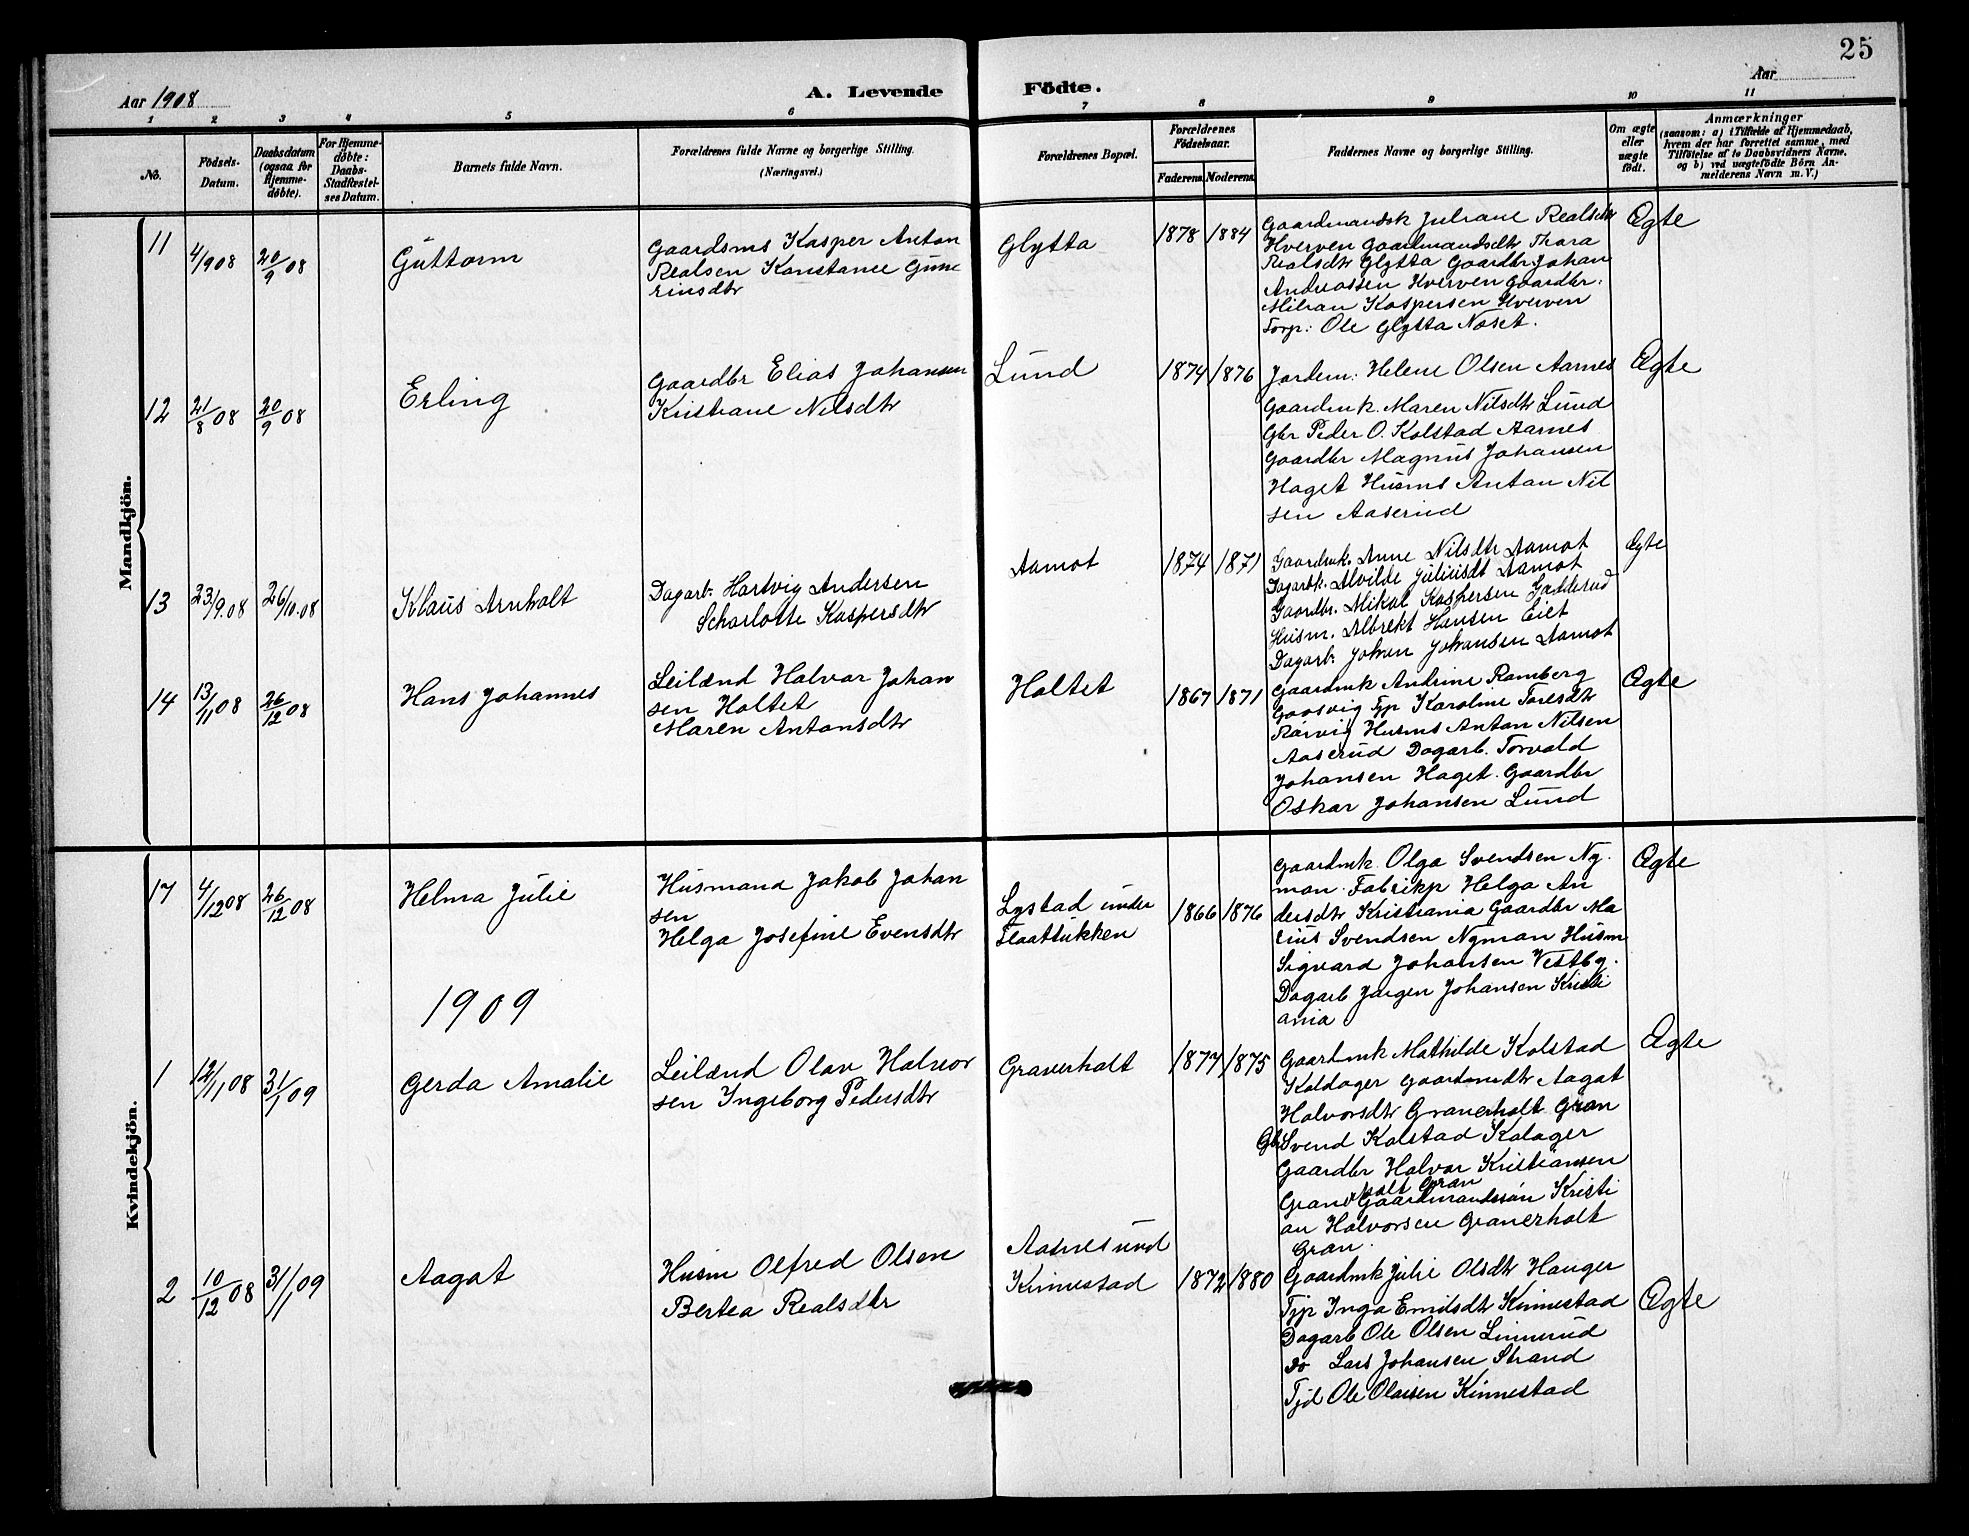 25
Aar 1908
A. Levende Födte.
Aar
1 2 3 4 5 6 7 8 9 10 11
No.
Födsels-
Datum.
Daabsdatum
(ogsaa for
Hjemme-
döbte).
For Hjemme-
döbte:
Daabs-
Stadfæstel-
ses Datum.
Barnets fulde Navn.
Forældrenes fulde Navne og borgerlige Stilling.
(Næringsvei.)
Forældrenes Bopæl.
Forældrenes
Födselsaar.
Faderens. Moderens.
Faddernes Navne og borgerlige Stilling.
Om ægte
eller
uægte
födt.
Anmærkninger
(saasom: a) i Tilfælde af Hjemmedaab,
hvem der har forrettet samme, med
Tilföielse af to Daabsvidners Navne.
og b) ved uægtefödte Börn An-
melderens Navn m. V.)
Mandkjön.
11
4/9 08
20/9 08
Guttorm
Gaardsms Kasper Anton
Realsen Konstance Gune
riusdtr
Glytta
1878 1884
Gaardmandsk Juliane Realsdtr
Hverven Gaardmandsdtr Thora
Realsdtr Glytta Gaardbr Johan
Andreassen Hverven Gaardbr:
Milian Kaspersen Hverven
Forp: Ole Glytta Næset.
Ægte
12
21/8 08
20/9 08
Erling
Gaardbr Elias Johansen
Kristiane Nilsdtr
Lund
1874 1876
Jordem: Helene Olsen Aarnes
Gaardmk. Maren Nilsdtr Lund
Gbr Peder O. Kolstad Aarnes
Gaardbr Magnus Johansen
Haget Husms Anton Nil
sen Aaserud
Ægte
13
23/9.08
26/10.08
Klaus Arnholt
Dagarb. Hartvig Andersen
Scharlotte Kaspersdtr
Aamot
1874 1871
Gaardmk. Anne Nilsdtr Aamot
Dagarbk. Alvilde Juliusdt Aamot
Gaardbr. Mikal Kaspersen Gadderud
Husm. Albrekt Hansen Eiet
Dagarb. Johan Johansen Aamot
Ægte
14
13/11 08
26/12 08
Hans Johannes
Leilænd Halvor Johan
sen Holtet
Maren Antonsdtr
Holtet
1867 1871
Gaardmk Andrine Ramberg
Gaasvig Tjp Karoline Toresdtr
Rørvig Husms Anton Nilsen
Aaserud Dagarb. Torvald
Johansen Haget. Gaardbr
Oskar Johansen Lund
Ægte
Kvindekjön.
17
4/12 08
26/12 08
Helma Julie
Husmand Jakob Johan
sen
Helga Josefine Evensdtr
Lystad under
Flaattukken
1866 1876
Gaardmk. Olga Svendsen Ny-
man. Fabrikp Helga An
dersdtr Kristiania Gaardbr Ma
rius Svendsen Nyman Husm
Sigvard Johansen Vestby.
Dagarb Jørgen Johansen Kristi
ania
Ægte
1909
1
12/11 08
31/1 09
Gerda Amalie
Leilænd Olav Halvor
sen Ingeborg Pedersdtr
Graverholt
1877 1875
Gaardmk Mathilde Kolstad
Koldager Gaardsmdtr Aagot
Halvorsdtr Granerholt Gran
Gbr Svend Kolstad Kolager
Gaardbr Halvor Kristiansen
Granerholt Gran
Gaardmandssøn Kristi
an Halvorsen Granerholt
Gran.
Ægte
2
10/12 08
31/1 09
Aagot
Husm Olfred Olsen
Bertea Realsdtr
Aasnesund
Kinnestad
1872 1880
Gaardmk Julie Olsdtr Hauger
Tjp Inga Emilsdtr Kinnestad
Dagarb Ole Olsen Linnerud
Do Lars Johansen Strand
Tjd Ole Olaisen Kinnestad
Ægte